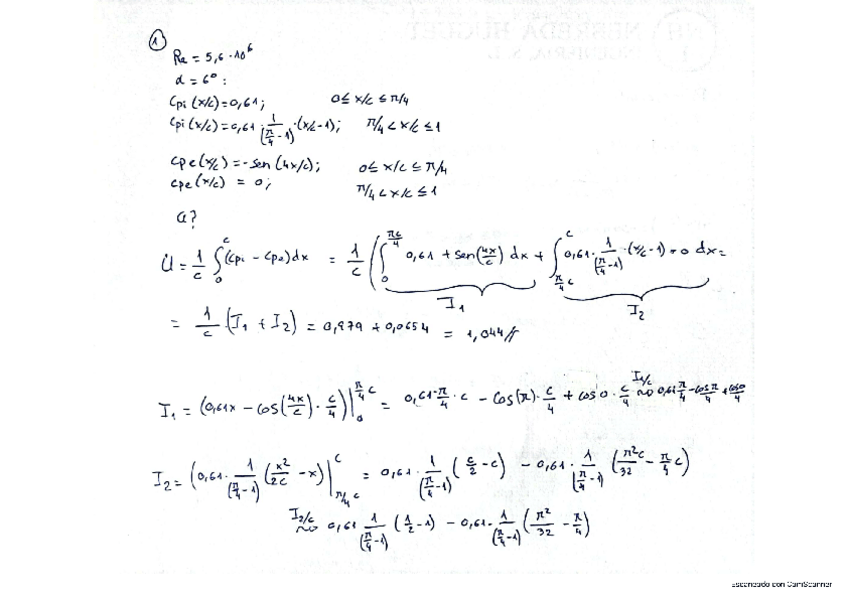 ①
Re = 5,6 · 10⁶
α = 6º :
Cpi (x/c) = 0,61 ; 0 ≤ x/c ≤ π/4
Cpi (x/c) = 0,61 · 1/(π/4 -1) · (x/c -1) ; π/4 < x/c ≤ 1
Cpe (x/c) = - sen (4x/c) ; 0 ≤ x/c ≤ π/4
Cpe (x/c) = 0 ; π/4 < x/c ≤ 1
Cl ?
Cl = 1/c ∫₀^c (Cpi - Cpe) dx = 1/c ( ∫₀^(πc/4) 0,61 + sen(4x/c) dx + ∫_(π/4 c)^c 0,61 · 1/(π/4 -1) · (x/c -1) - 0 dx =
I₁ I₂
= 1/c (I₁ + I₂) = 0,979 + 0,0654 = 1,044 //
I₁ = (0,61x - cos(4x/c) · c/4) |₀^(π/4 c) = 0,61 · π/4 · c - cos(π) · c/4 + cos 0 · c/4 I₁/c ⤳ 0,61 π/4 - cos π/4 + cos0/4
I₂ = (0,61 · 1/(π/4 -1) (x²/2c - x) |_(π/4 c)^c = 0,61 · 1/(π/4 -1) (c/2 - c) - 0,61 · 1/(π/4 -1) (π²c/32 - π/4 c)
I₂/c ⤳ 0,61 1/(π/4 -1) (1/2 -1) - 0,61 · 1/(π/4 -1) (π²/32 - π/4)
Escaneado con CamScanner